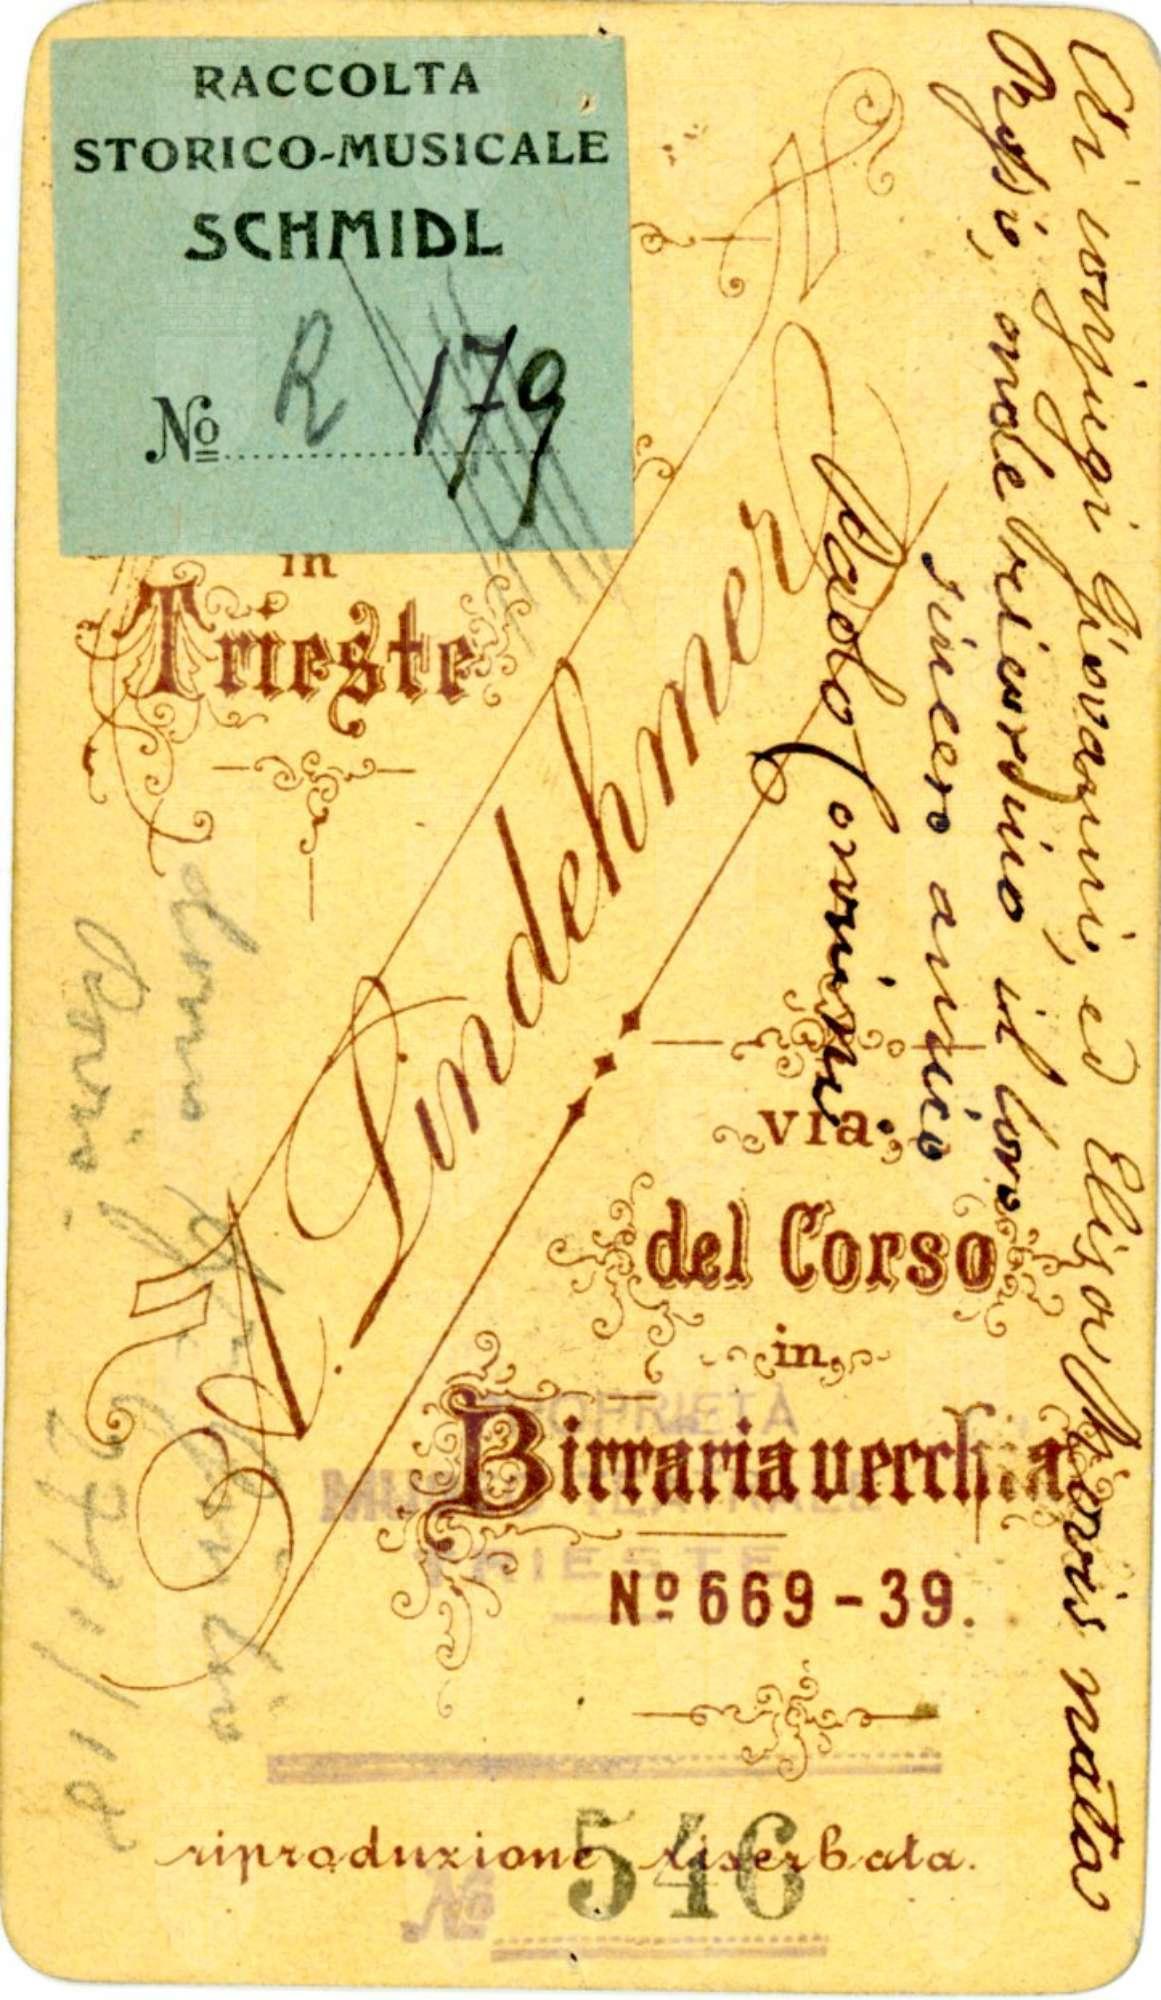 RACCOLTA
STORICO-MUSICALE
SCHMIDL
Nº R 179
in
Trieste
A. Lindehmer
via
del Corso
in
Birraria vecchia
Nº 669-39.
riproduzione riserbata.
PROPRIETÀ
MUSEO TEATRALE
TRIESTE
Nº 546
Ai conjugi Giovanni, ed Elisa nata
Orossi, onde briscordino il loro
sincero amico
Paolo